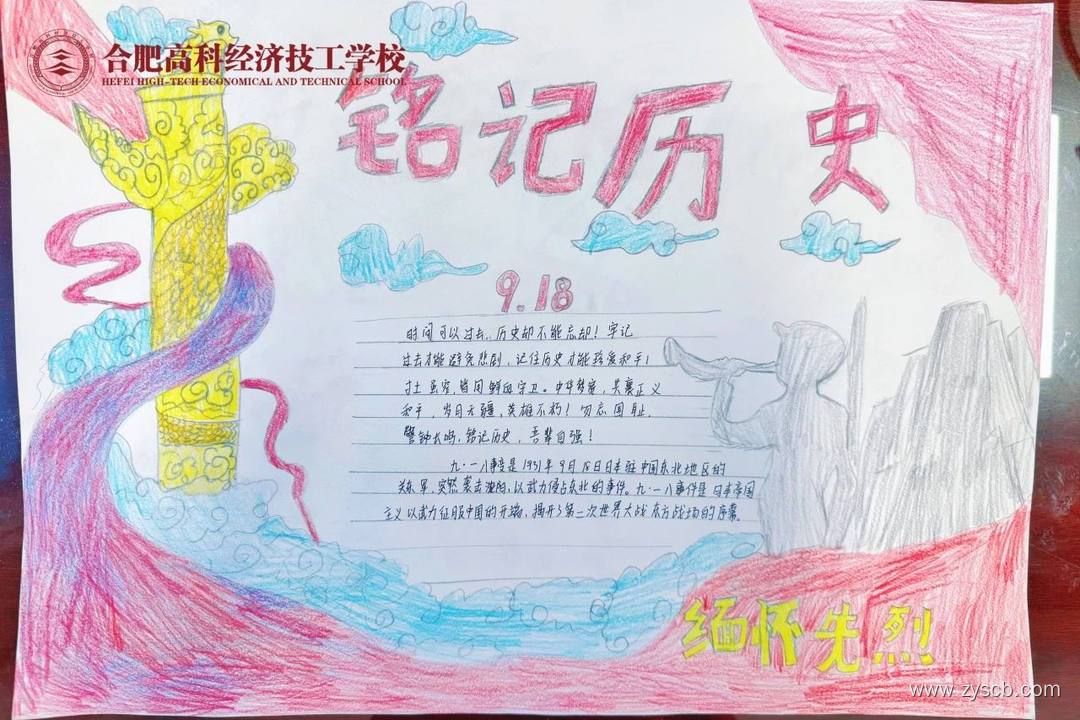 合肥高科经济技工学校
HEFEI HIGH-TECH ECONOMICAL AND TECHNICAL SCHOOL
铭记历史
9.18
时间可以过去,历史却不能忘却!牢记
过去才能避免悲剧,记住历史才能珍爱和平!
寸土虽穷,皆用鲜血守卫。中华梦寐,共襄正义
和平,岁月无疆,英雄不朽!勿忘国耻,
警钟长鸣,铭记历史,吾辈自强!
九·一八事变是1931年9月18日日本驻中国东北地区的
关东军,突然袭击沈阳,以武力侵占东北的事件。九·一八事件是日本帝国
主义以武力征服中国的开端,揭开了第二次世界大战东方战场的序幕。
缅怀先烈
www.zyscb.com